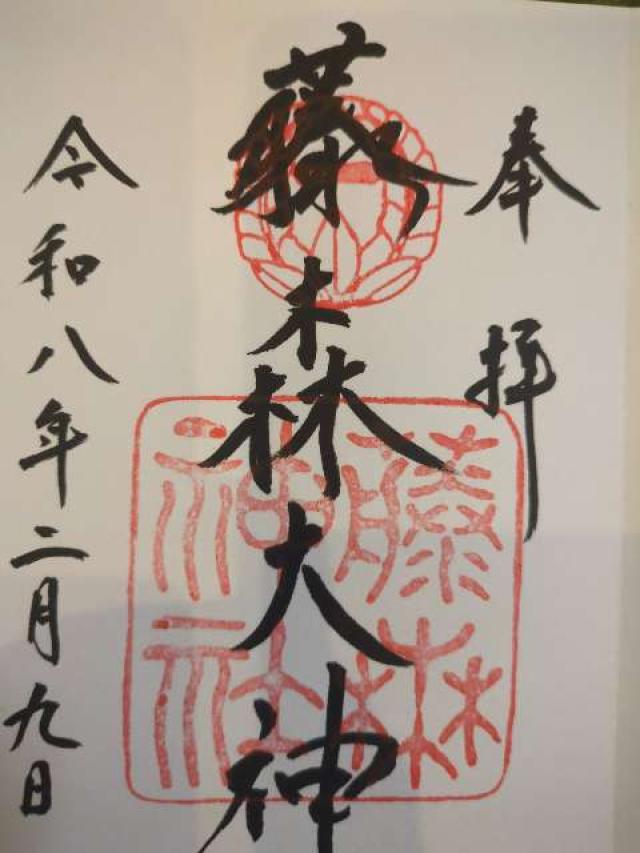 奉拝
藤森大神
令和八年二月九日
藤森神社